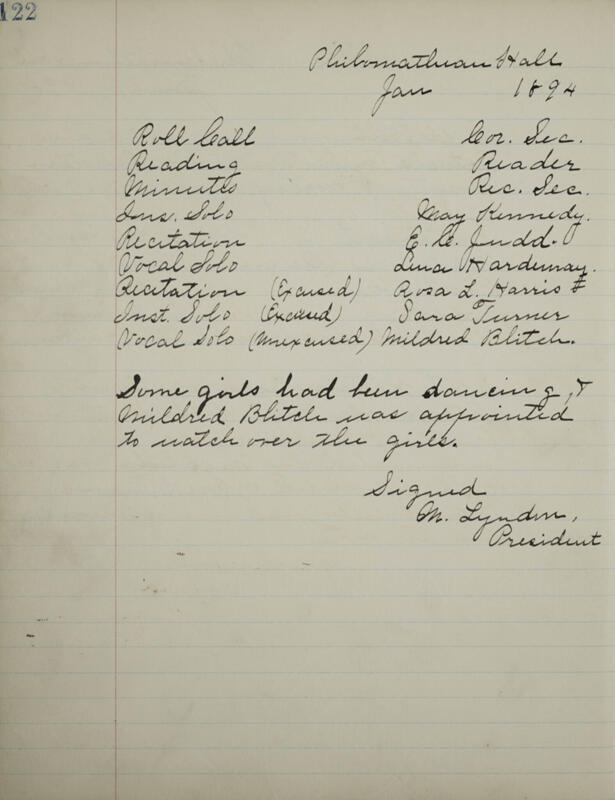 122
Philomathean Hall
Jan 1894
Roll Call Cor. Sec.
Reading Reader
Minutes Rec. Sec.
Ins. Solo May Kennedy.
Recitation E. C. Judd.
Vocal Solo Lena Hardeman.
Recitation (Excused) Rosa L. Harris #
Inst. Solo (Excused) Sara Turner
Vocal Solo (Unexcused) Mildred Blitch.
Some girls had been dancing, &
Mildred Blitch was appointed
to watch over the girls.
Signed
M. Lyndon,
President